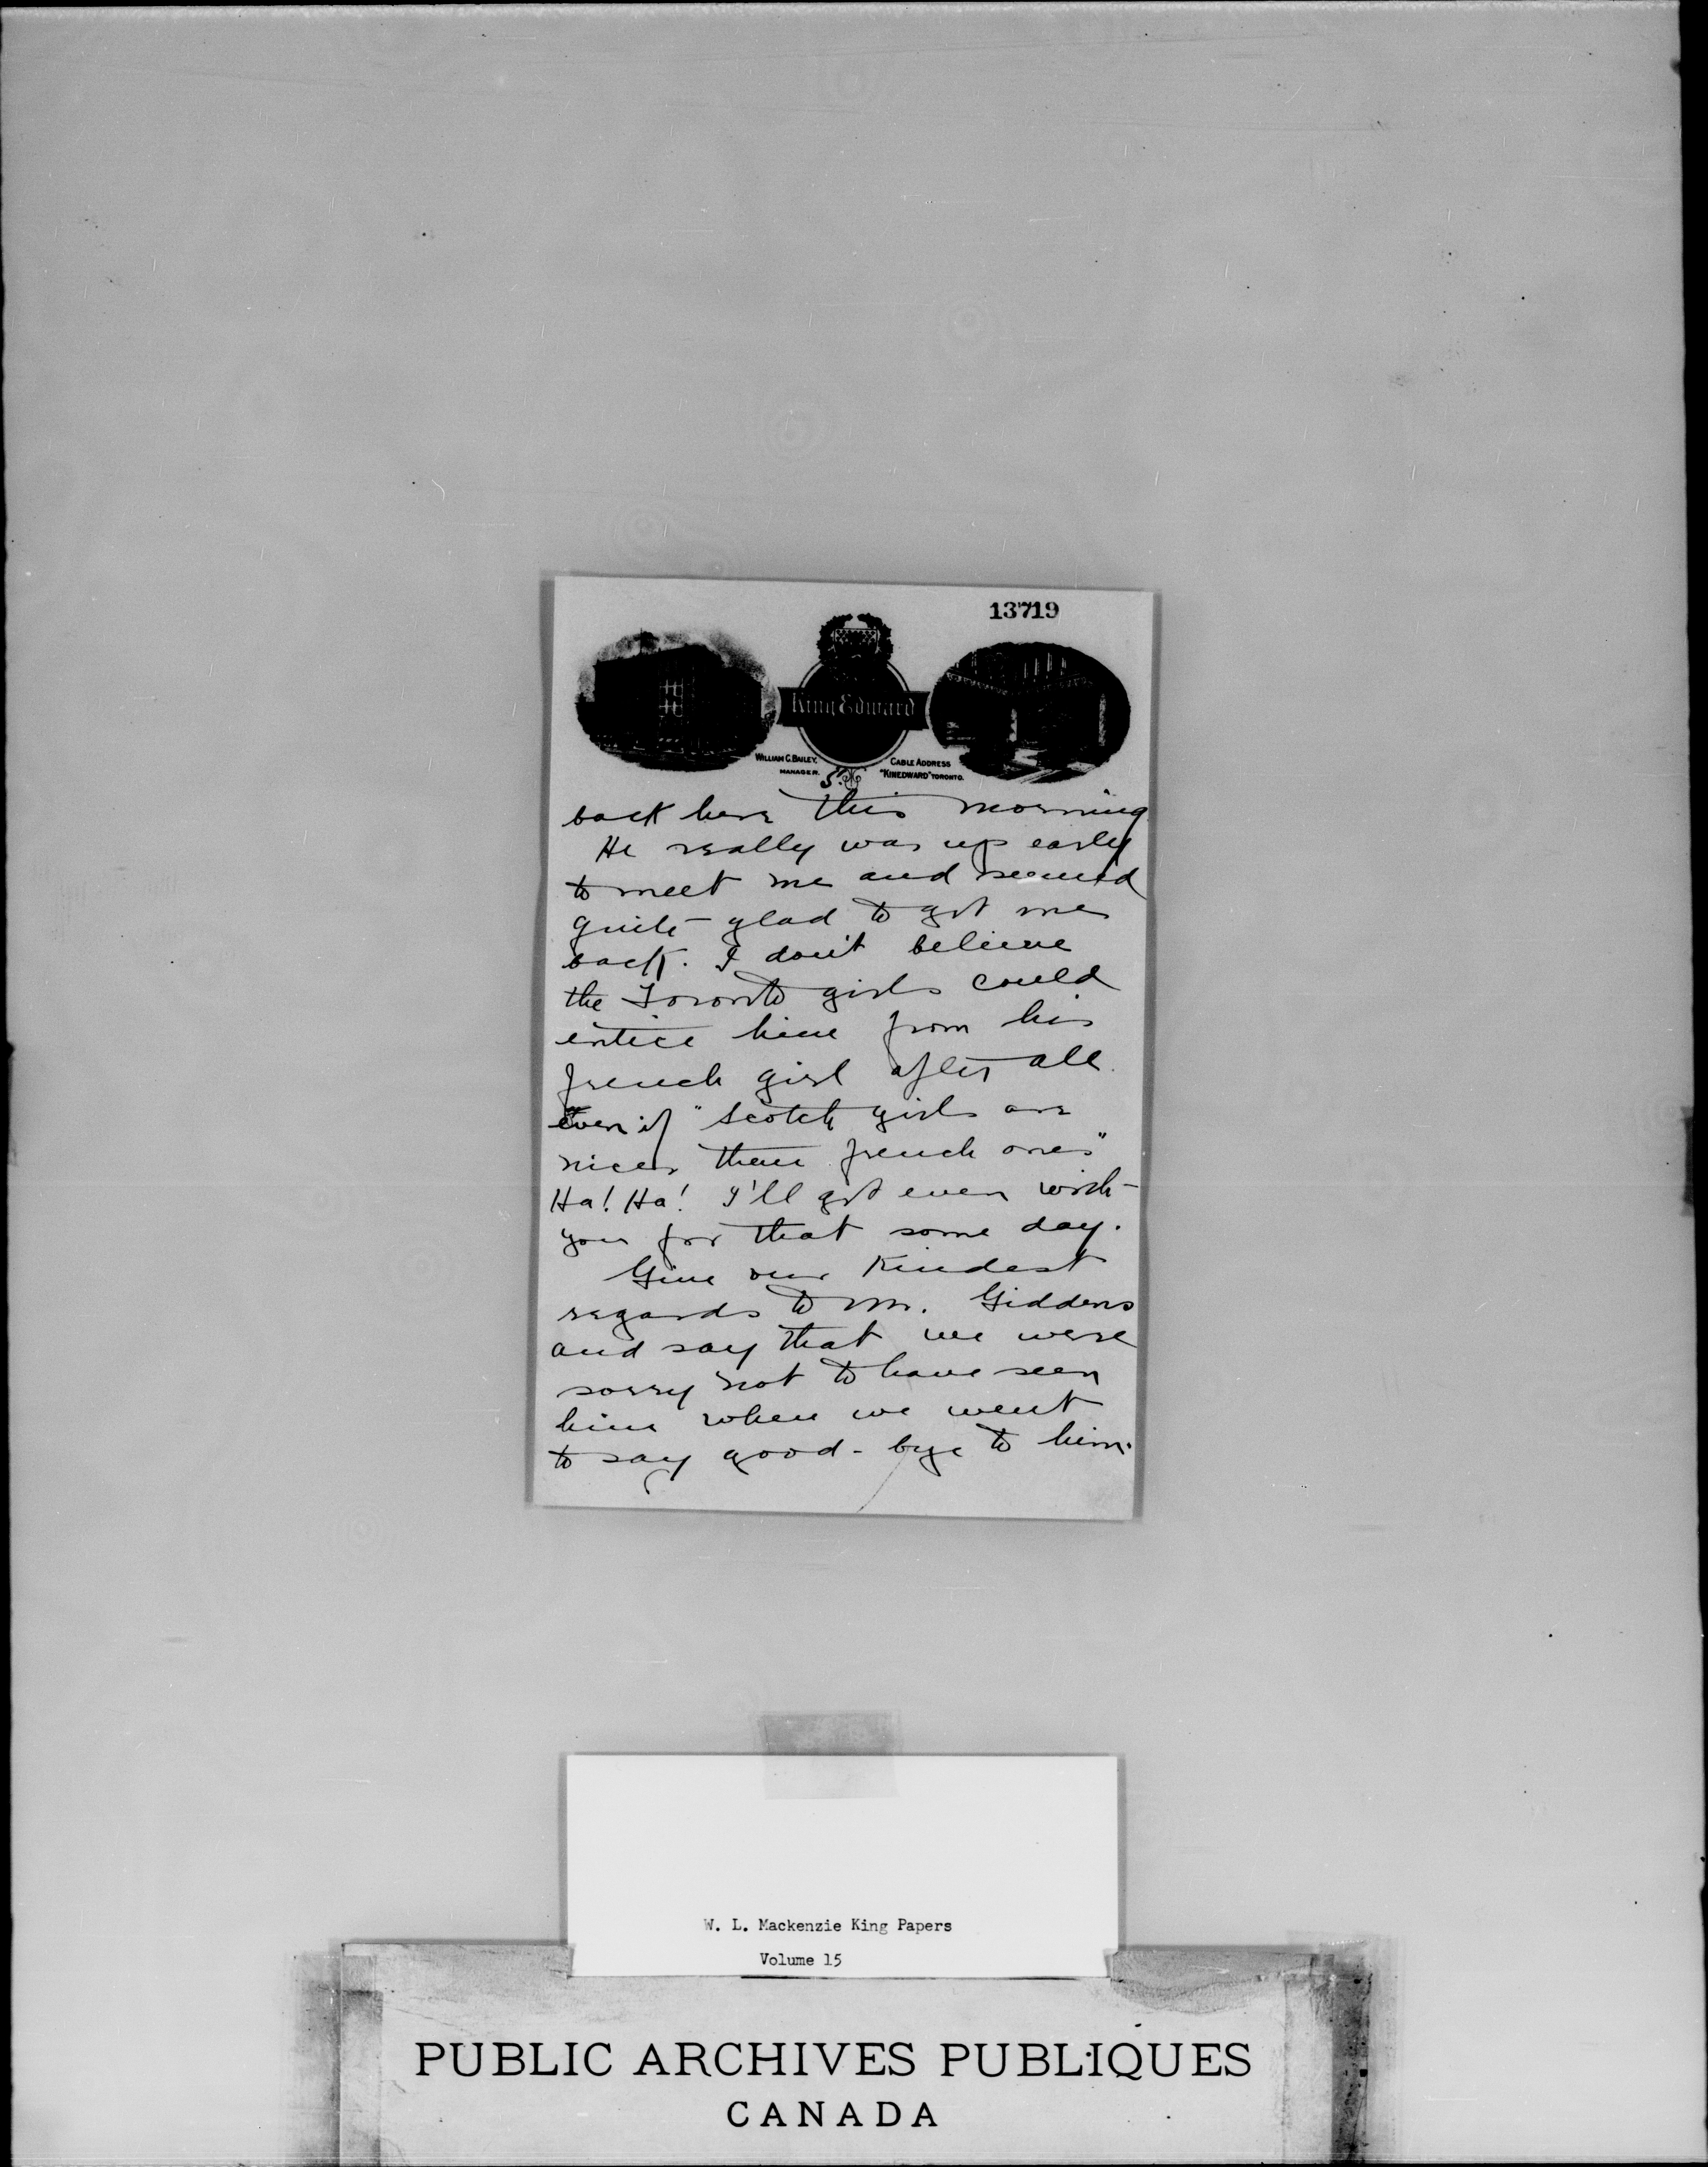 13719
King Edward
WILLIAM G. BAILEY,
MANAGER.
CABLE ADDRESS
"KINEDWARD" TORONTO.
5.
back here this morning
He really was up early
to meet me and seemed
quite glad to get me
back. I don't believe
the Toronto girls could
entice him from his
french girl after all.
Even if "Scotch girls are
nicer than french ones"
Ha! Ha! I'll get even with
you for that some day.
Give our kindest
regards to Mr. Giddens
and say that we were
sorry not to have seen
him when we went
to say good-bye to him.
W. L. Mackenzie King Papers
Volume 15
PUBLIC ARCHIVES PUBLIQUES
CANADA